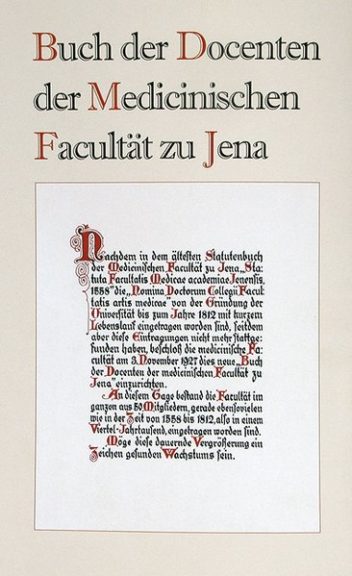 Buch der Docenten
der Medicinischen
Facultät zu Jena
Nachdem in dem ältesten Statutenbuch
der Medicinischen Facultät zu Jena „Sta-
tuta Facultatis Medicae academiae Jenensis,
1558" die „Nomina Doctorum Collegii Facul-
tatis artis medicae" von der Gründung der
Universität bis zum Jahre 1812 mit kurzem
Lebenslauf eingetragen worden sind, seitdem
aber diese Eintragungen nicht mehr stattge-
funden haben, beschloß die medicinische Fa-
cultät am 3. November 1927 dies neue „Buch
der Docenten der medicinischen Facultät zu
Jena" einzurichten.
An diesem Tage bestand die Facultät im
ganzen aus 50 Mitgliedern, gerade ebensovielen
wie in der Zeit von 1558 bis 1812, also in einem
Viertel-Jahrtausend, eingetragen worden sind.
Möge diese dauernde Vergrößerung ein
Zeichen gesunden Wachstums sein.